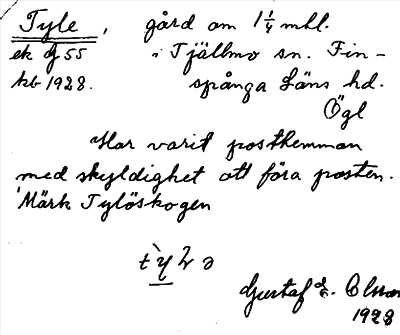 Tyle, gård om 1 1/4 mtl.
ek df 55 i Tjällmo sn. Fin-
kb 1928. spånga Läns hd.
Ögl
Har varit posthemman
med skyldighet att föra posten.
Märk Tylöskogen
Gustaf E. Olsson
1928